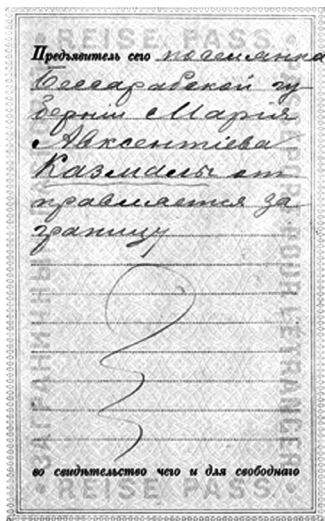 REISE PASS
Предъявитель сего поселянка
Бессарабской гу
берніи Марія
Авксентіева
Казмалы от
правляется за
границу
во свидѣтельство чего и для свободнаго
REISE PASS
ЗАГРАНИЧНЫЙ
PASSEPORT POUR L'ETRANGER